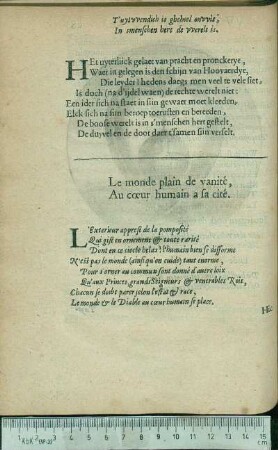 In smenschen hers de werelt is.
HEt uyterlijck gelaet van pracht en pronckerye,
Waer in gelegen is den schijn van Hooveerdye,
Die leyder hedens daegs men veel te vele siet,
Is doch (na d'ijdel waen) de rechte werelt niet:
Een ider sich na staet in sijn gewaet moet kleeden,
Elck sich na sijn beroep toerusten en bereeden,
De boose werelt is in 's menschen hert gestelt,
De duyvel en de doot daer t'samen sijn verselt.
Le monde plain de vanité,
Au cœur humain a sa cité.
L'Exterieur appresst de la pomposité
Qui gist en ornement & toute rarité
Dont en ce siecle helas l'humain bien se difforme
N'est pas le monde (ainsi qu'on cuide) tant enorme,
Pour s'orner au commun sont donné d'autre loix
Qu'aux Princes, grands Seigneurs & venerables Rois,
Chacun se doibt parer selon l'estat & race,
Le monde & le Diable au cœur humain se place.
cm 1 2 3 4 5 6 7 8 9 10 11 12 13 14 15